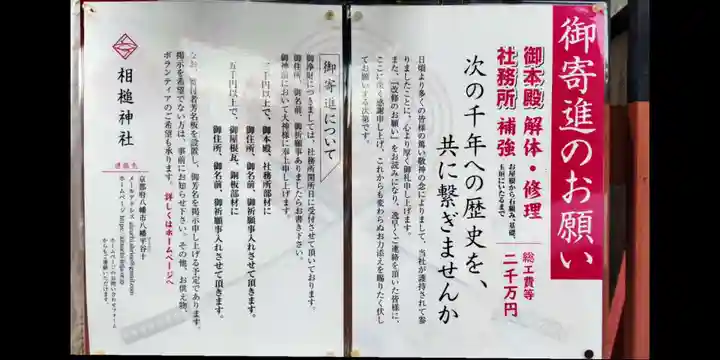 御寄進のお願い
御本殿 解体・修理
お屋根から石組み、基礎、
玉垣にいたるまで
社務所 補強
総工費等
二千万円
次の千年への歴史を、
共に繋ぎませんか
日頃より多くの皆様の篤い敬神の念によりまして、当社が護持されて参
りましたことに、心より厚く御礼申し上げます。
また、「改修のお願い」をお読みになり、逸早くご連絡を頂いた皆様に、
ここに深く感謝申し上げ、これからも変わらぬお力添えを賜りたく伏し
てお願いする次第です。
御寄進について
御浄財につきましては、社務所開所日に受付させて頂いております。
御住所、御名前、御祈願事ありましたらお書き下さい。
御神前において大神様に奉上申し上げます。
二千円以上で、御本殿、社務所部材に
御住所、御名前、御祈願事入れさせて頂きます。
五千円以上で、御屋根瓦、銅板部材に
御住所、御名前、御祈願事入れさせて頂きます。
なお、寄付者芳名板を設置し、御芳名を掲示申し上げる予定であります。
掲示を希望でない方は、事前にお知らせ下さい。その他、お供え物、
ボランティアのご希望も承ります。詳しくはホームページへ
相槌神社
連絡先
京都府八幡市八幡平谷十
メールアドレス
ホームページ
ホームページのお問い合わせフォーム
からもご連絡いただけます。